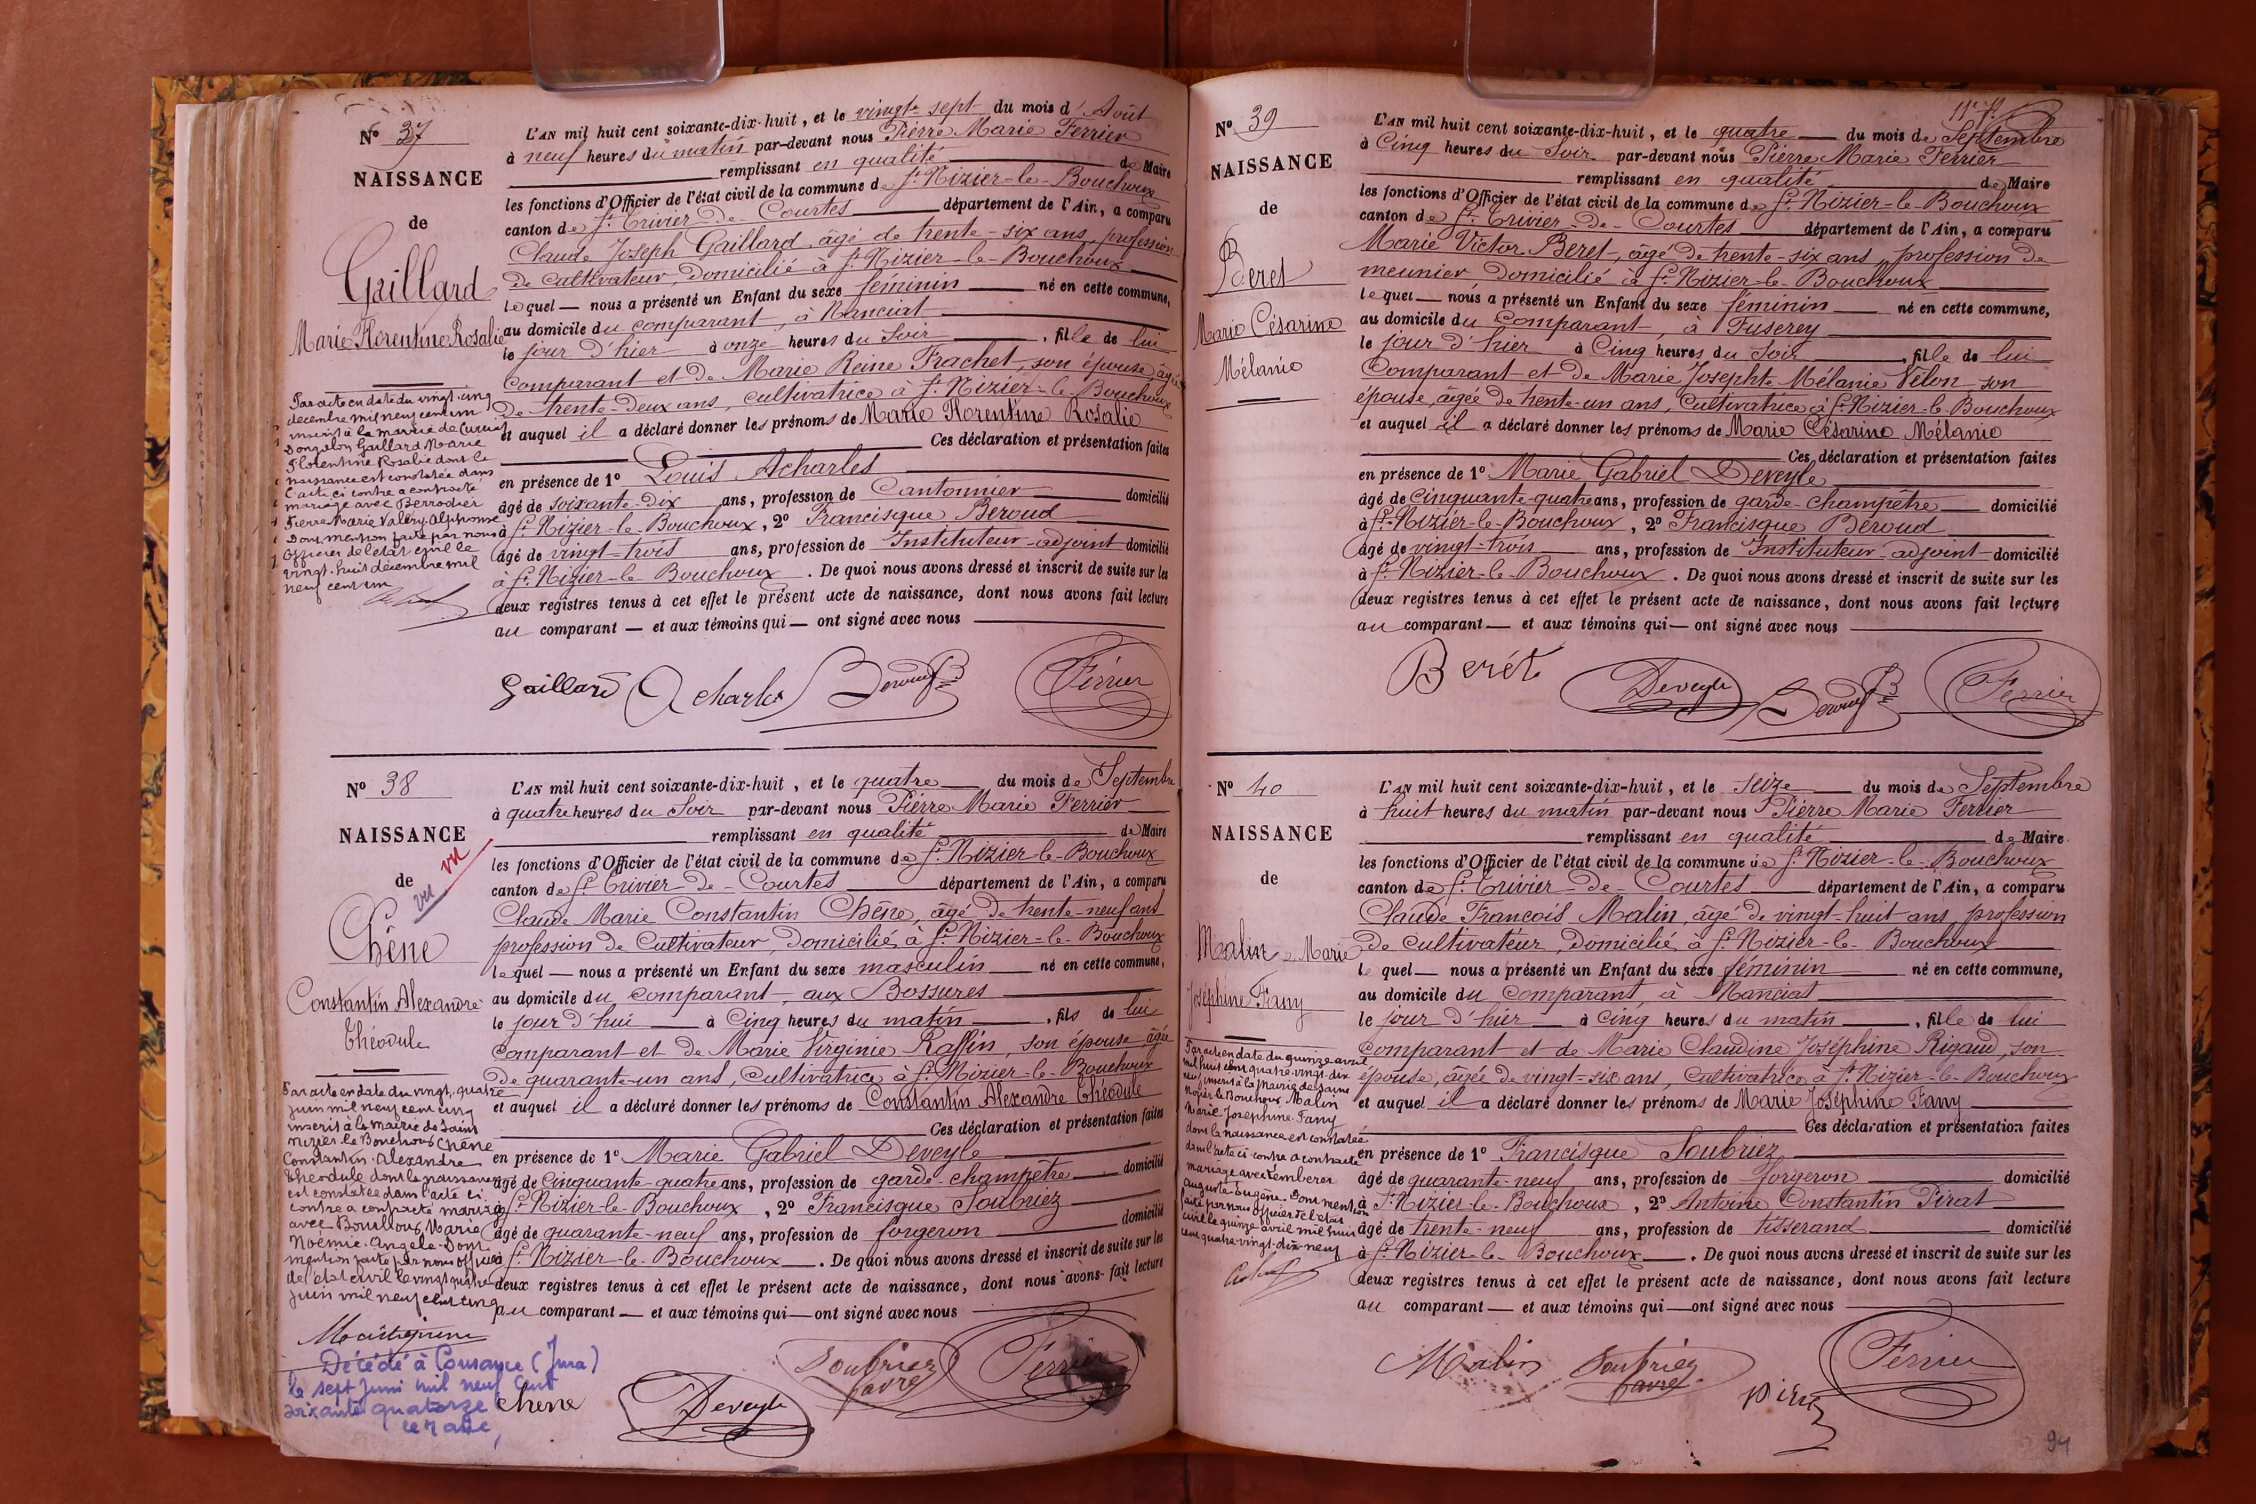 N° 37
NAISSANCE
de
Gaillard
Marie Florentine Rosalie
Par acte en date du vingt-cinq
décembre mil neuf cent un
inscrit à la mairie de
Gaillard Marie
Florentine Rosalie dont la
naissance est constatée dans
l'acte ci contre a contracté
mariage avec Perrodier
Pierre Marie Valéry Alphonse
Dont mention faite par nous
officier de l'état civil le
vingt-huit décembre mil
neuf cent un
L'AN mil huit cent soixante-dix-huit, et le vingt-sept du mois d'Août
à neuf heures du matin par-devant nous Pierre Marie Ferrier
remplissant en qualité de Maire
les fonctions d'Officier de l'état civil de la commune de St Nizier-le-Bouchoux
canton de St Trivier-de-Courtes département de l'Ain, a comparu
Claude Joseph Gaillard, âgé de trente-six ans, profession
de cultivateur, domicilié à St Nizier-le-Bouchoux
lequel nous a présenté un Enfant du sexe féminin né en cette commune,
au domicile du comparant, à Manciat
le jour d'hier à onze heures du soir, fille de lui
comparant et de Marie Reine Frachet, son épouse, âgée
de trente-deux ans, cultivatrice à St Nizier-le-Bouchoux
et auquel il a déclaré donner les prénoms de Marie Florentine Rosalie
Ces déclaration et présentation faites
en présence de 1° Louis Acharles
âgé de soixante-dix ans, profession de Cantonnier domicilié
à St Nizier-le-Bouchoux, 2° Francisque Beroud
âgé de vingt-trois ans, profession de Instituteur-adjoint domicilié
à St Nizier-le-Bouchoux. De quoi nous avons dressé et inscrit de suite sur les
deux registres tenus à cet effet le présent acte de naissance, dont nous avons fait lecture
au comparant et aux témoins qui ont signé avec nous
Gaillard Acharles Beroud Ferrier
N° 38
NAISSANCE
vu
de
vu
Chêne
Constantin Alexandre
Théodule
Par acte en date du vingt-quatre
juin mil neuf cent cinq
inscrit à la mairie de Saint
Nizier le Bouchoux Chêne
Constantin Alexandre
Théodule dont la naissance
est constatée dans l'acte ci
contre a contracté mariage
avec Bouilloux Marie
Noémie Angèle. Dont
mention faite par nous officier
de l'état civil le vingt quatre
juin mil neuf cent cinq
Décédé à Cousance (Jura)
le sept juin mil neuf cent
soixante quatorze
L'AN mil huit cent soixante-dix-huit, et le quatre du mois de Septembre
à quatre heures du Soir par-devant nous Pierre Marie Ferrier
remplissant en qualité de Maire
les fonctions d'Officier de l'état civil de la commune de St Nizier-le-Bouchoux
canton de St Trivier-de-Courtes département de l'Ain, a comparu
Claude Marie Constantin Chêne, âgé de trente-neuf ans
profession de Cultivateur, domicilié à St Nizier-le-Bouchoux
lequel nous a présenté un Enfant du sexe masculin né en cette commune,
au domicile du comparant, aux Bossures
le jour d'hui à Cinq heures du matin, fils de lui
comparant et de Marie Virginie Raffin, son épouse, âgée
de quarante-un ans, Cultivatrice à St Nizier-le-Bouchoux
et auquel il a déclaré donner les prénoms de Constantin Alexandre Théodule
Ces déclaration et présentation faites
en présence de 1° Marie Gabriel Deveyle
âgé de cinquante-quatre ans, profession de garde-champêtre domicilié
à St Nizier-le-Bouchoux, 2° Francisque Soubriez
âgé de quarante-neuf ans, profession de forgeron domicilié
à St Nizier-le-Bouchoux. De quoi nous avons dressé et inscrit de suite sur les
deux registres tenus à cet effet le présent acte de naissance, dont nous avons fait lecture
au comparant et aux témoins qui ont signé avec nous
Chene Deveyle Soubriez favre Ferrier
N° 39
NAISSANCE
de
Beret
Marie Césarine
Mélanie
L'AN mil huit cent soixante-dix-huit, et le quatre du mois de Septembre
à Cinq heures du Soir par-devant nous Pierre Marie Ferrier
remplissant en qualité de Maire
les fonctions d'Officier de l'état civil de la commune de St Nizier-le-Bouchoux
canton de St Trivier-de-Courtes département de l'Ain, a comparu
Marie Victor Beret, âgé de trente-six ans, profession de
meunier domicilié à St Nizier-le-Bouchoux
lequel nous a présenté un Enfant du sexe féminin né en cette commune,
au domicile du Comparant, à Fuserey
le jour d'hier à Cinq heures du Soir, fille de lui
Comparant et de Marie Josephte Mélanie Vélon son
épouse, âgée de trente-un ans, Cultivatrice à St Nizier-le-Bouchoux
et auquel il a déclaré donner les prénoms de Marie Césarine Mélanie
Ces déclaration et présentation faites
en présence de 1° Marie Gabriel Deveyle
âgé de Cinquante-quatre ans, profession de garde-champêtre domicilié
à St Nizier-le-Bouchoux, 2° Francisque Béroud
âgé de vingt-trois ans, profession de Instituteur-adjoint domicilié
à St Nizier-le-Bouchoux. De quoi nous avons dressé et inscrit de suite sur les
deux registres tenus à cet effet le présent acte de naissance, dont nous avons fait lecture
au comparant et aux témoins qui ont signé avec nous
Berét Deveyle Beroud Ferrier
N° 40
NAISSANCE
de
Malin Marie
Joséphine Fany
Par acte en date du quinze avril
mil huit cent quatre-vingt-dix
neuf inscrit à la mairie de Saint
Nizier le Bouchoux Malin
Marie Joséphine Fany
dont la naissance est constatée
dans l'acte ci contre a contracté
mariage avec Remberer
Auguste Eugène. Dont mention
faite par nous officier de l'état
civil le quinze avril mil huit
cent quatre-vingt-dix-neuf
L'AN mil huit cent soixante-dix-huit, et le seize du mois de Septembre
à huit heures du matin par-devant nous Pierre Marie Ferrier
remplissant en qualité de Maire
les fonctions d'Officier de l'état civil de la commune de St Nizier-le-Bouchoux
canton de St Trivier-de-Courtes département de l'Ain, a comparu
Claude François Malin, âgé de vingt-huit ans, profession
de cultivateur, domicilié à St Nizier-le-Bouchoux
lequel nous a présenté un Enfant du sexe féminin né en cette commune,
au domicile du comparant, à Manciat
le jour d'hier à Cinq heures du matin, fille de lui
comparant et de Marie Claudine Joséphine Rigaud, son
épouse, âgée de vingt-six ans, Cultivatrice à St Nizier-le-Bouchoux
et auquel il a déclaré donner les prénoms de Marie Joséphine Fany
Ces déclaration et présentation faites
en présence de 1° Francisque Soubriez
âgé de quarante-neuf ans, profession de forgeron domicilié
à St Nizier-le-Bouchoux, 2° Antoine Constantin Pirat
âgé de trente-neuf ans, profession de tisserand domicilié
à St Nizier-le-Bouchoux. De quoi nous avons dressé et inscrit de suite sur les
deux registres tenus à cet effet le présent acte de naissance, dont nous avons fait lecture
au comparant et aux témoins qui ont signé avec nous
Malin Soubriez favre Pirat Ferrier
94